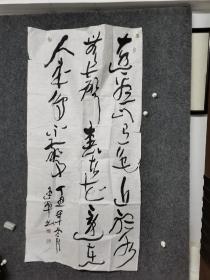 遠看山有色近聽水
無聲春去花還在
人來鳥不驚